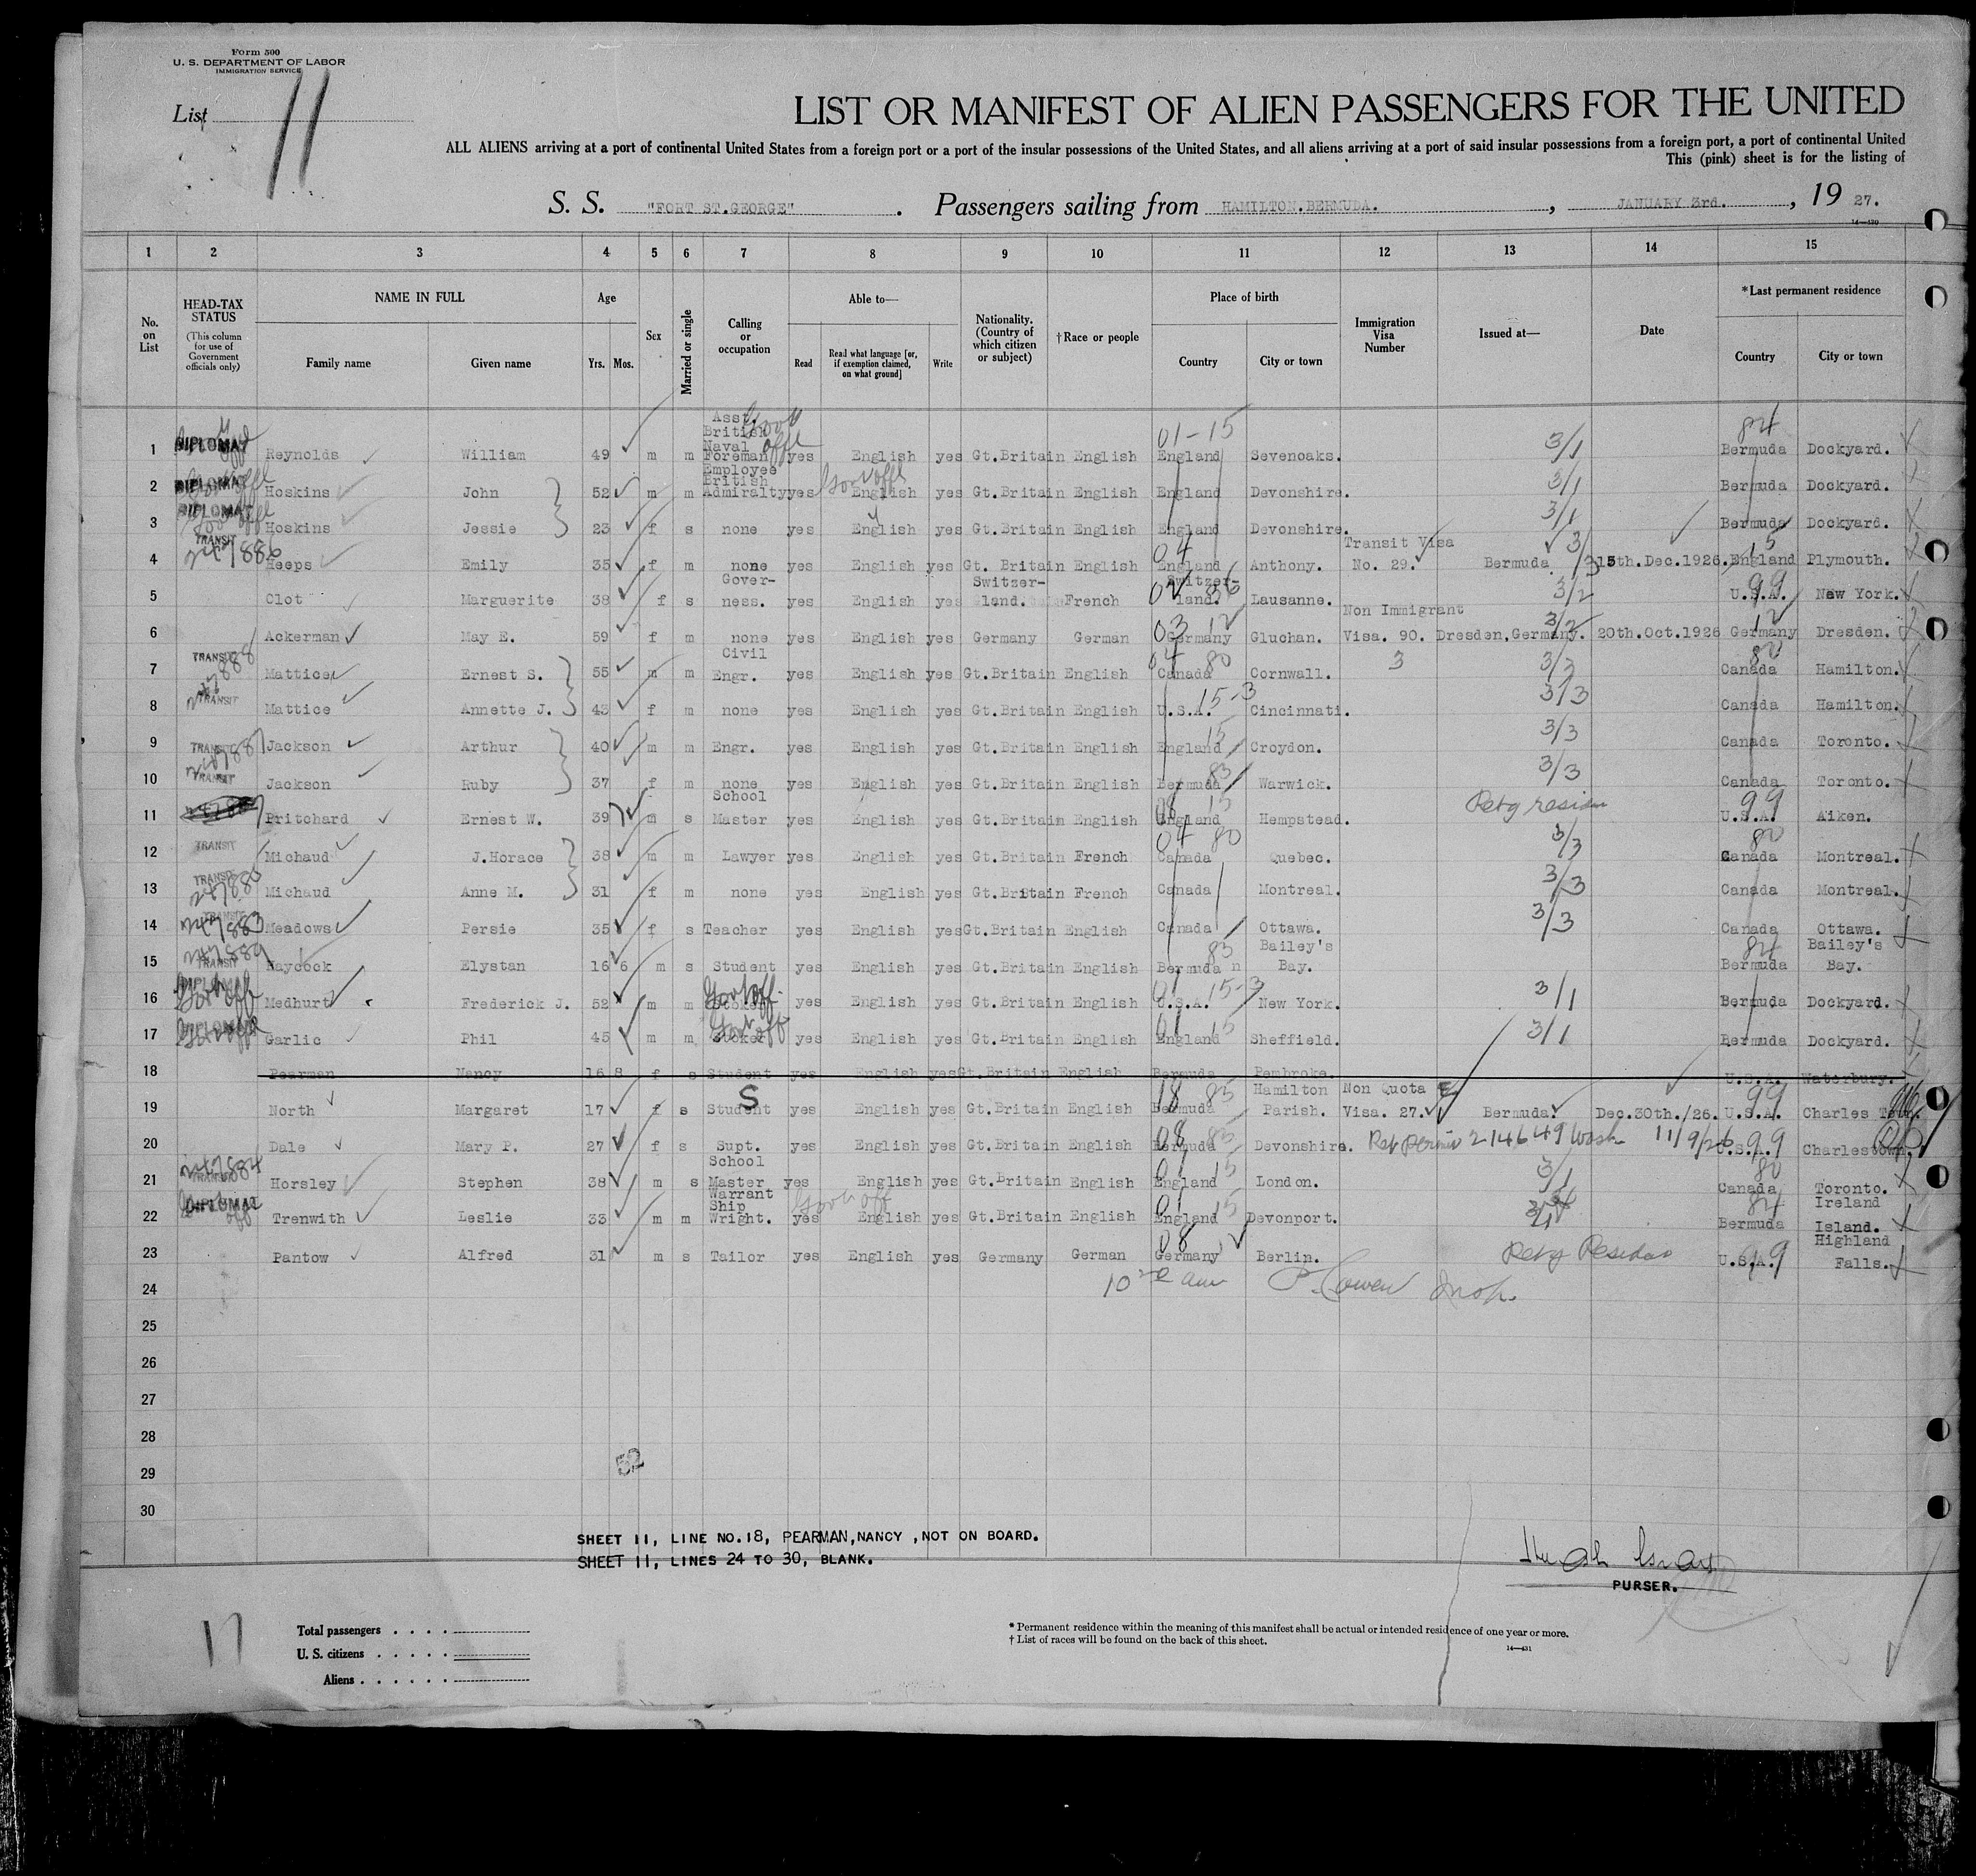 Form 500
U. S. DEPARTMENT OF LABOR
IMMIGRATION SERVICE
List 11
LIST OR MANIFEST OF ALIEN PASSENGERS FOR THE UNITED
ALL ALIENS arriving at a port of continental United States from a foreign port or a port of the insular possessions of the United States, and all aliens arriving at a port of said insular possessions from a foreign port, a port of continental United
This (pink) sheet is for the listing of
S. S. "FORT ST.GEORGE" . Passengers sailing from HAMILTON.BERMUDA. , JANUARY 3rd. , 19 27.
14—430
1 2 3 4 5 6 7 8 9 10 11 12 13 14 15
No. on List
HEAD-TAX STATUS
(This column for use of Government officials only)
NAME IN FULL
Family name Given name
Age
Yrs. Mos.
Sex
Married or single
Calling or occupation
Able to—
Read
Read what language [or, if exemption claimed, on what ground]
Write
Nationality. (Country of which citizen or subject)
†Race or people
Place of birth
Country City or town
Immigration Visa Number
Issued at—
Date
*Last permanent residence
Country City or town
1 DIPLOMAT Reynolds William 49 m m Asst. British Naval Foreman yes English yes Gt.Britain English 01-15 England Sevenoaks. 3/1 84 Bermuda Dockyard.
2 DIPLOMAT Hoskins John 52 m m Employee British Admiralty yes English yes Gt.Britain English England Devonshire. 3/1 Bermuda Dockyard.
3 DIPLOMAT Hoskins Jessie 23 f s none yes English yes Gt.Britain English England Devonshire. 3/1 Bermuda Dockyard.
4 TRANSIT 247886 Heeps Emily 35 f m none yes English yes Gt. Britain English 04 England Anthony. Transit Visa No. 29. Bermuda 3/3 15th.Dec.1926. 15 England Plymouth.
5 Clot Marguerite 38 f s Gover-ness. yes English yes Switzer-land. French Switzer-land. Lausanne. 3/2 99 U.S.A. New York.
6 Ackerman May E. 59 f m none yes English yes Germany German 03 12 Germany Gluchan. Non Immigrant Visa. 90. Dresden,Germany. 3/2 20th.Oct.1926 12 Germany Dresden.
7 TRANSIT Mattice Ernest S. 55 m m Civil Engr. yes English yes Gt.Britain English 04 80 Canada Cornwall. 3 3/3 80 Canada Hamilton.
8 TRANSIT Mattice Annette J. 45 f m none yes English yes Gt.Britain English U.S.A. 15-3 Cincinnati. 3/3 Canada Hamilton.
9 TRANSIT Jackson Arthur 40 m m Engr. yes English yes Gt.Britain English 15 England Croydon. 3/3 Canada Toronto.
10 TRANSIT Jackson Ruby 37 f m none yes English yes Gt.Britain English 83 Bermuda Warwick. 3/3 Canada Toronto.
11 Pritchard Ernest W. 39 m s School Master yes English yes Gt.Britain English 08 15 England Hempstead. 99 U.S.A. Aiken.
12 TRANSIT Michaud J.Horace 38 m m Lawyer yes English yes Gt.Britain French 04 80 Canada Quebec. 3/3 80 Canada Montreal.
13 TRANSIT Michaud Anne M. 31 f m none yes English yes Gt.Britain French Canada Montreal. 3/3 Canada Montreal.
14 TRANSIT 247883 Meadows Persie 35 f s Teacher yes English yes Gt.Britain English Canada Ottawa. 3/3 Canada Ottawa.
15 TRANSIT Haycock Elystan 16 6 m s Student yes English yes Gt.Britain English 83 Bermuda Bailey's Bay. 84 Bermuda Bailey's Bay.
16 DIPLOMAT Govt off Medhurt Frederick J. 52 m m Govt off. yes English yes Gt.Britain English 01 15-3 U.S.A. New York. 3/1 Bermuda Dockyard.
17 DIPLOMAT Garlic Phil 45 m m Stoker Govt off yes English yes Gt.Britain English 01 15 England Sheffield. 3/1 Bermuda Dockyard.
18 Pearman Nancy 16 8 f s Student yes English yes Gt.Britain English Bermuda Pembroke. U.S.A. Waterbury.
19 North Margaret 17 f s S Student yes English yes Gt.Britain English 18 83 Bermuda Hamilton Parish. Non Quota Visa. 27. Bermuda. Dec.30th./26. 99 U.S.A. Charles Town.
20 Dale Mary P. 27 f s Supt. yes English yes Gt.Britain English 08 83 Bermuda Devonshire. Ret permit 214649 Wash 11/9/26 U.S.A. 99 Charlestown.
21 247884 TRANSIT Horsley Stephen 38 m s School Master yes English yes Gt.Britain English 04 15 England London. 3/1 80 Canada Toronto.
22 DIPLOMAT Trenwith Leslie 33 m m Warrant Ship Wright. yes Govt off English yes Gt.Britain English 01 15 England Devonport. 84 Bermuda Ireland Island.
23 Pantow Alfred 31 m s Tailor yes English yes Germany German 08 12 Germany Berlin. 99 U.S.A. Highland Falls.
24
25
26
27
28
29
30
52
SHEET 11, LINE NO.18, PEARMAN,NANCY ,NOT ON BOARD.
SHEET 11, LINES 24 TO 30, BLANK.
PURSER.
Total passengers . . . .
U. S. citizens . . . . .
Aliens . . . . . .
* Permanent residence within the meaning of this manifest shall be actual or intended residence of one year or more.
† List of races will be found on the back of this sheet.
14—431